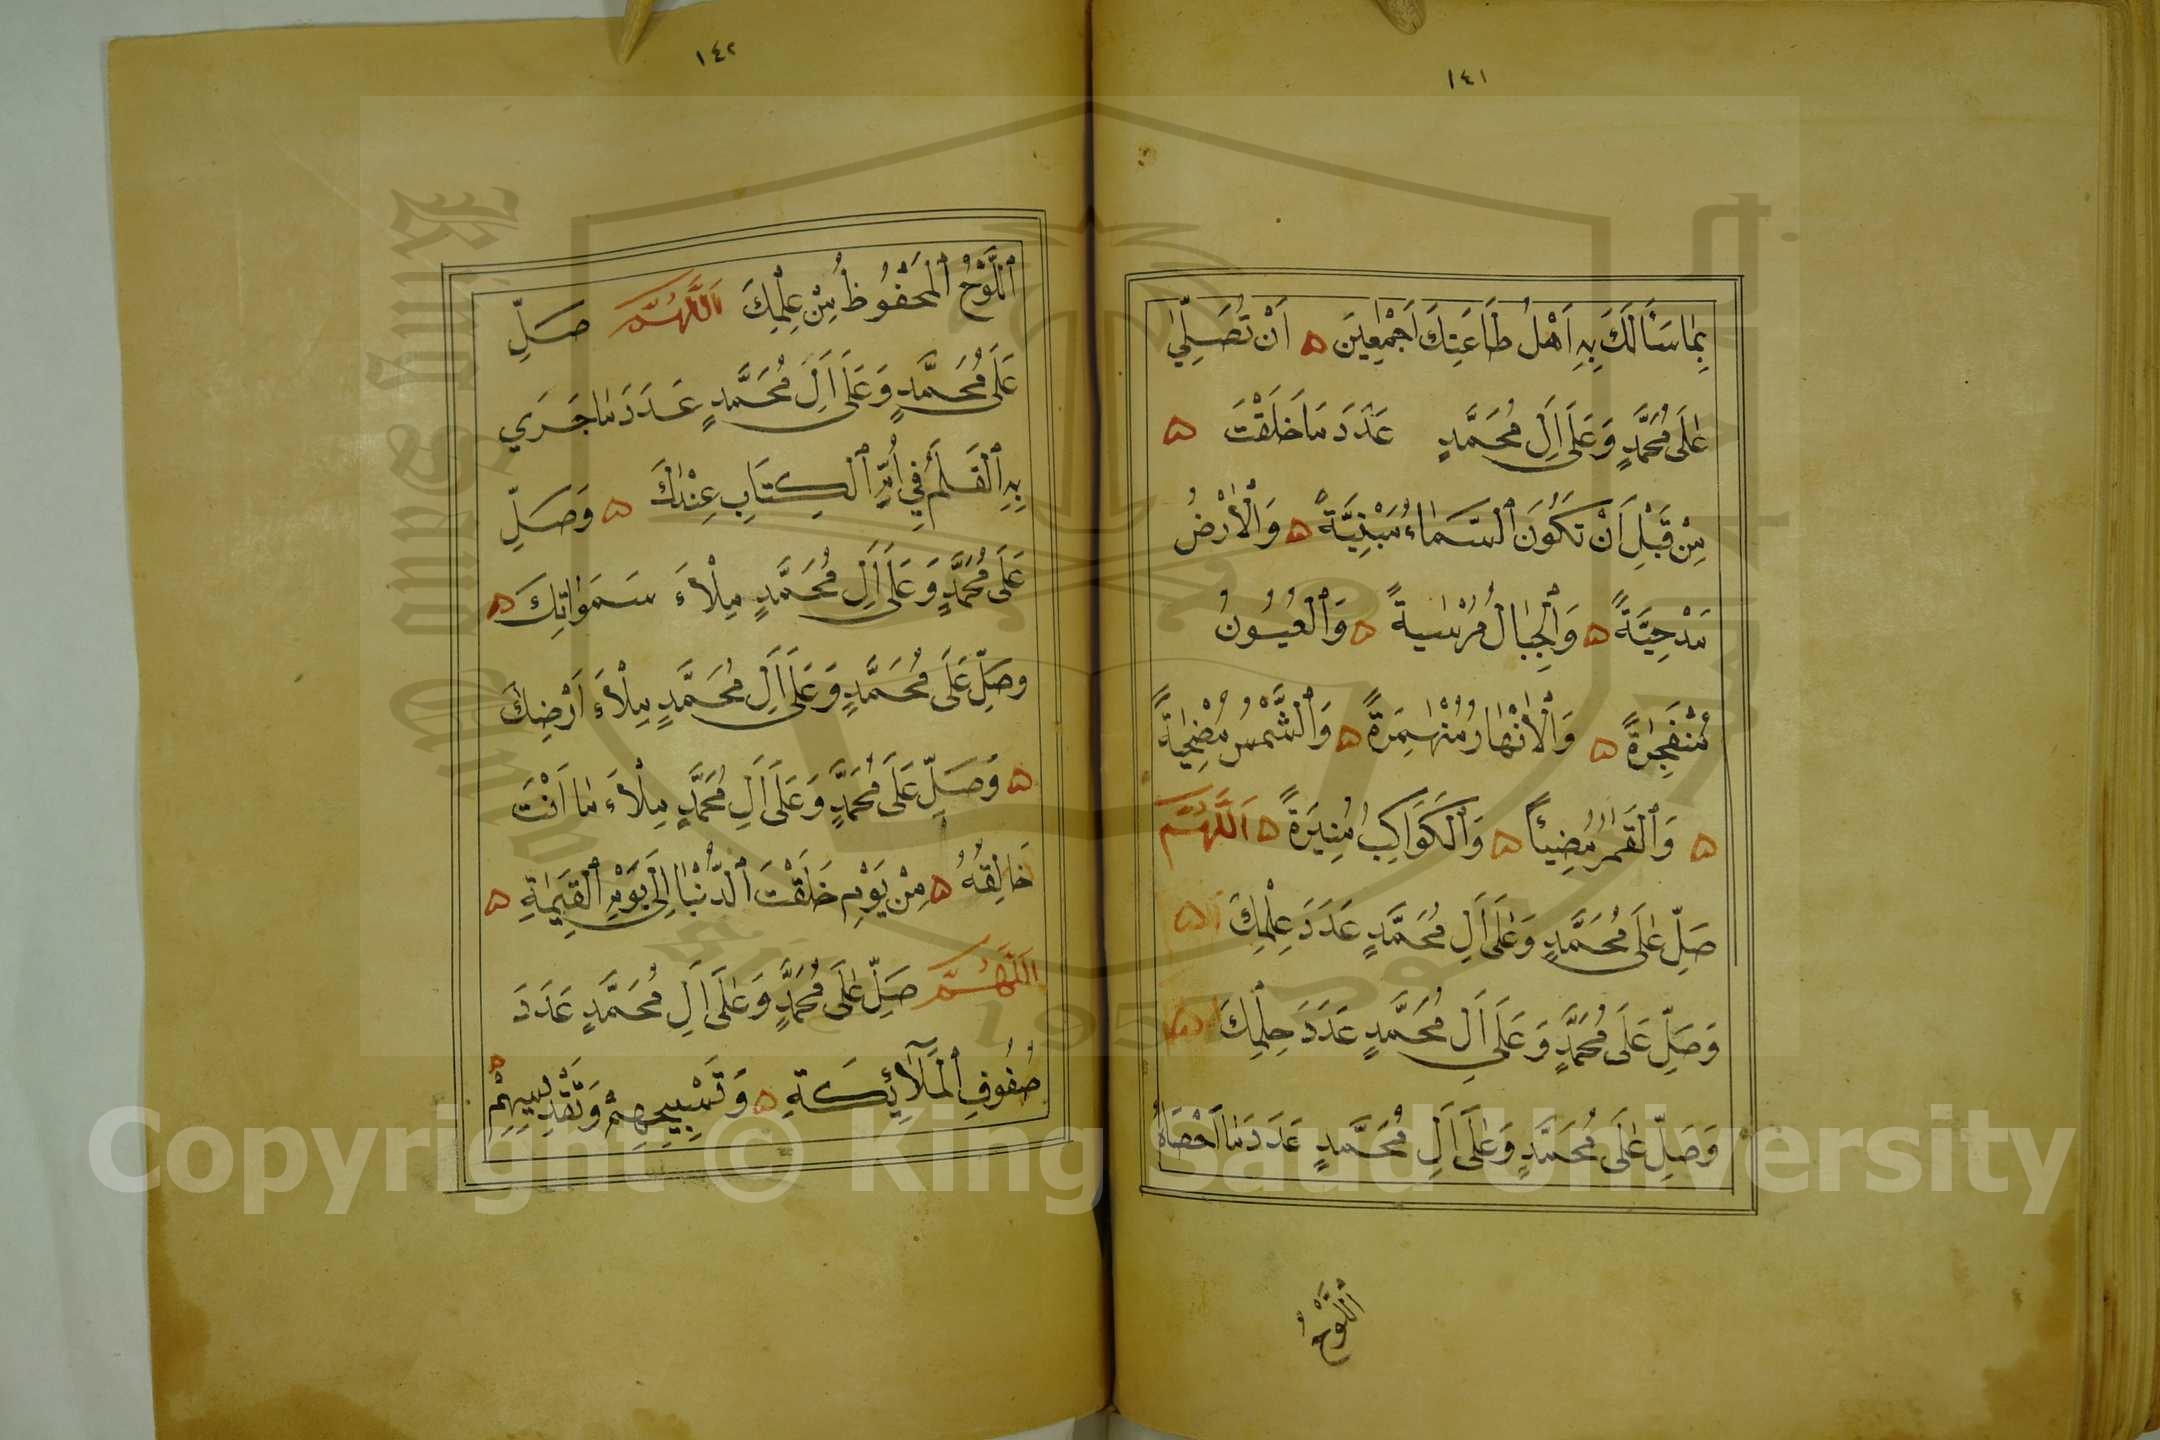 ١٤١
بِمَا سَأَلَكَ بِهِ أَهْلُ طَاعَتِكَ أَجْمَعِينَ ۞ أَنْ تُصَلِّيَ
عَلَى مُحَمَّدٍ وَعَلَى آلِ مُحَمَّدٍ عَدَدَ مَا خَلَقْتَ ۞
مِنْ قَبْلِ أَنْ تَكُونَ السَّمَاءُ مَبْنِيَّةً ۞ وَالْأَرْضُ
مَدْحِيَّةً ۞ وَالْجِبَالُ مُرْسِيَةً ۞ وَالْعُيُونُ
مُنْفَجِرَةً ۞ وَالْأَنْهَارُ مُنْهَمِرَةً ۞ وَالشَّمْسُ مُضْحِيَةً
۞ وَالْقَمَرُ مُضِيئًا ۞ وَالْكَوَاكِبُ مُنِيرَةً ۞ اَللَّهُمَّ
صَلِّ عَلَى مُحَمَّدٍ وَعَلَى آلِ مُحَمَّدٍ عَدَدَ عِلْمِكَ ۞
وَصَلِّ عَلَى مُحَمَّدٍ وَعَلَى آلِ مُحَمَّدٍ عَدَدَ حِلْمِكَ ۞
وَصَلِّ عَلَى مُحَمَّدٍ وَعَلَى آلِ مُحَمَّدٍ عَدَدَ مَا أَحْصَاهُ
اللَّوْحُ
١٤٢
اللَّوْحُ الْمَحْفُوظُ مِنْ عِلْمِكَ اَللَّهُمَّ صَلِّ
عَلَى مُحَمَّدٍ وَعَلَى آلِ مُحَمَّدٍ عَدَدَ مَا جَرَي
بِهِ الْقَلَمُ فِي أُمِّ الْكِتَابِ عِنْدَكَ ۞ وَصَلِّ
عَلَى مُحَمَّدٍ وَعَلَى آلِ مُحَمَّدٍ مِلْاءَ سَمَوَاتِكَ ۞
وَصَلِّ عَلَى مُحَمَّدٍ وَعَلَى آلِ مُحَمَّدٍ مِلْاءَ أَرْضِكَ
۞ وَصَلِّ عَلَى مُحَمَّدٍ وَعَلَى آلِ مُحَمَّدٍ مِلْاءَ مَا أَنْتَ
خَالِقُهُ ۞ مِنْ يَوْمِ خَلَقْتَ الدُّنْيَا إِلَى يَوْمِ الْقِيَمَةِ ۞
اَللَّهُمَّ صَلِّ عَلَى مُحَمَّدٍ وَعَلَى آلِ مُحَمَّدٍ عَدَدَ
صُفُوفِ الْمَلَآئِكَةِ ۞ وَتَسْبِيحِهِمْ وَتَقْدِيسِهِمْ ۞
King Saud University
1957
Copyright © King Saud University